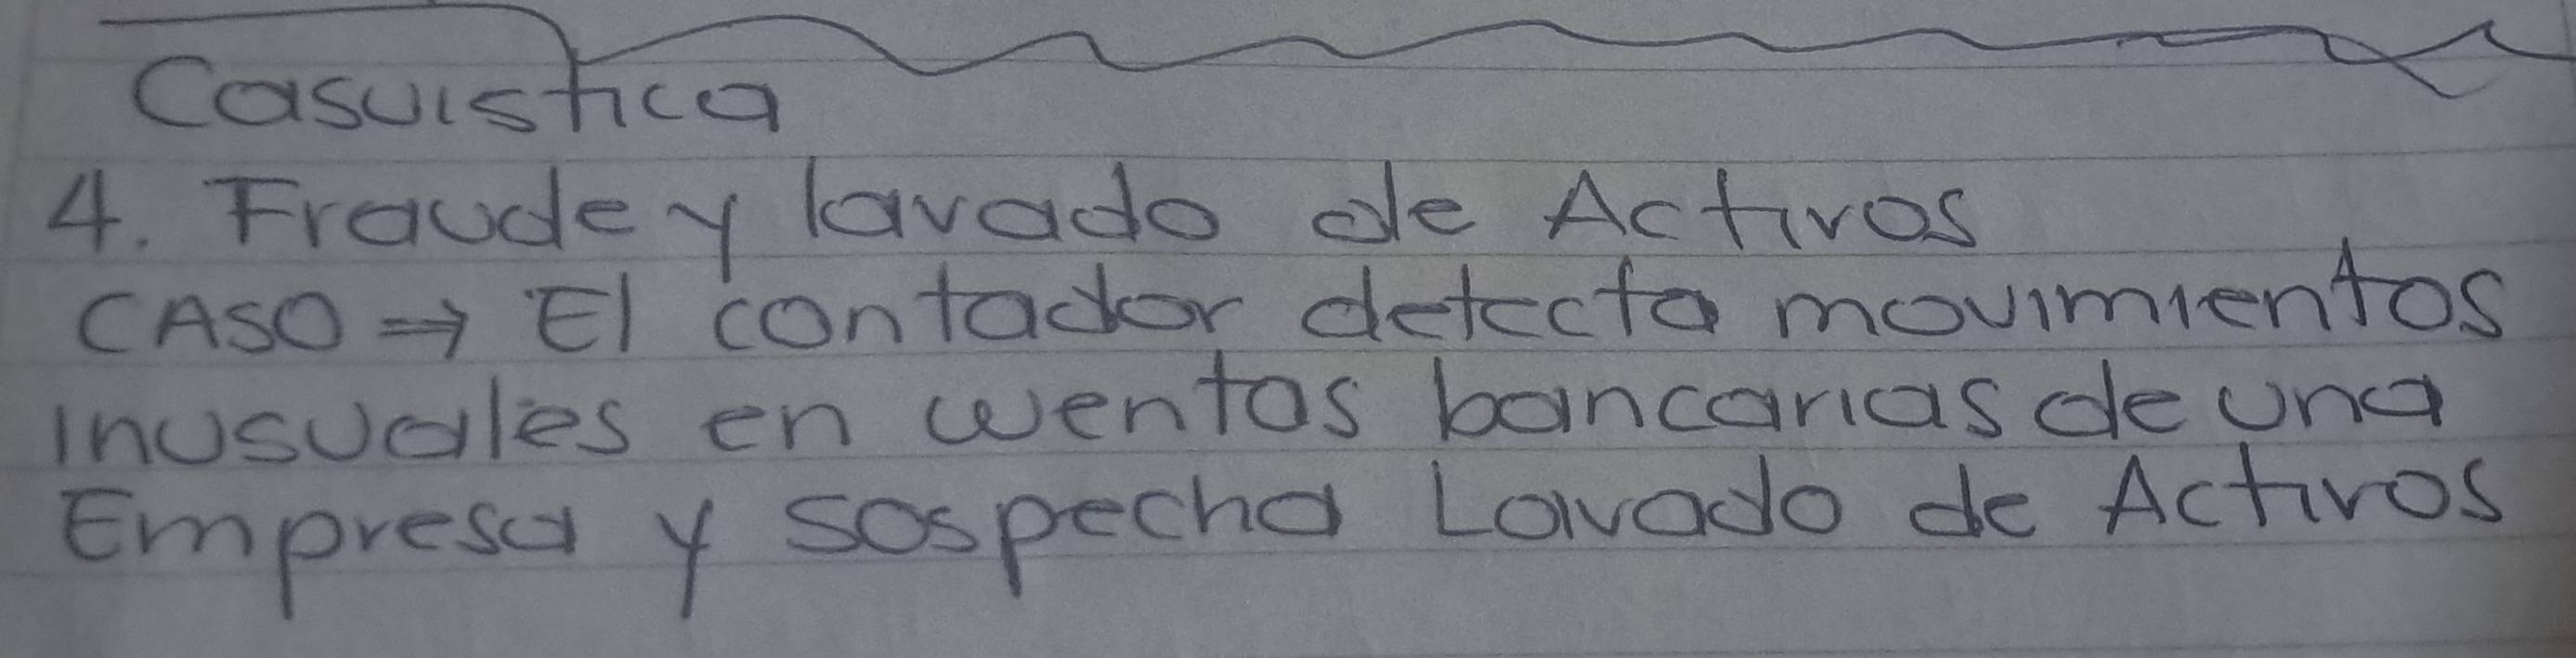 Casuistica
4. Fraude y lavado de Activos
CASO ⇒ El contador detecta movimientos
inusuales en cuentas bancarias de una
Empresa y sospecha Lavado de Activos